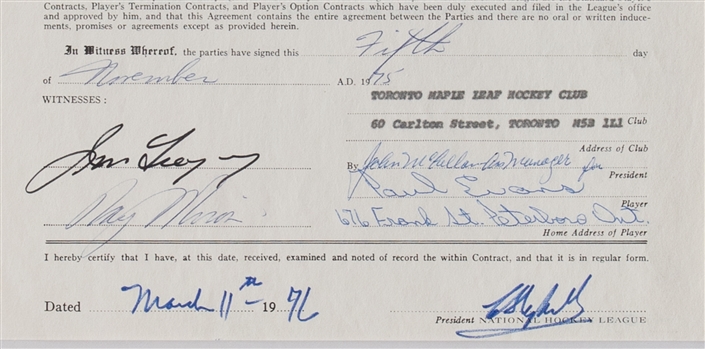 Contracts, Player's Termination Contracts, and Player's Option Contracts which have been duly executed and filed in the League's office
and approved by him, and that this Agreement contains the entire agreement between the Parties and there are no oral or written induce-
ments, promises or agreements except as provided herein.
In Witness Whereof, the parties have signed this Fifth day
of November A.D. 1975
WITNESSES :
TORONTO MAPLE LEAF HOCKEY CLUB
60 Carlton Street, TORONTO M5B 1L1 Club
Address of Club
By John McLellan for
President
Paul Evans
Player
676 Frank St. Peterboro Ont.
Home Address of Player
I hereby certify that I have, at this date, received, examined and noted of record the within Contract, and that it is in regular form.
Dated March 11th 1976
President NATIONAL HOCKEY LEAGUE